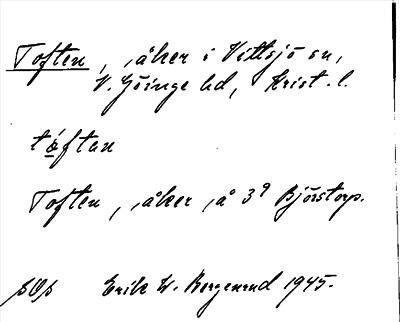 Toften, åker i Vittsjö sn,
V. Göinge hd, Krist. l.
tóftan
Toften, åker å 39 Björstorp.
Erik W. 1945.